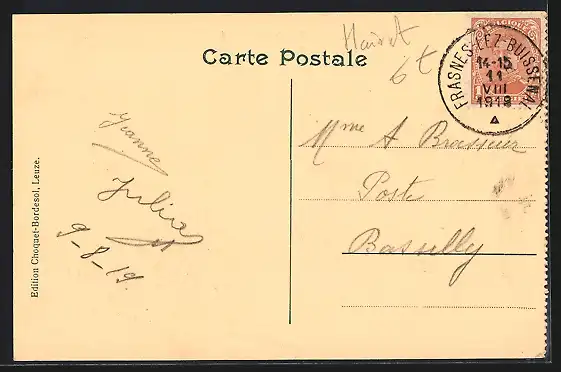 Carte Postale
6 t
BELGIQUE
FRASNES-LEZ-BUISSENAL
14-15
11
VIII
1919
Jeanne
Julia
9-8-19.
Mme A Brasseur
Poste
Bassilly
Edition Choquet-Bordesol, Leuze.